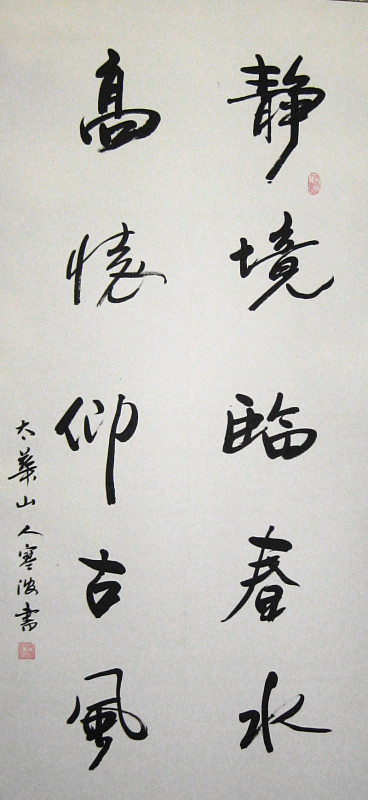 静境臨春水
高懷仰古風
太華山人寒波書